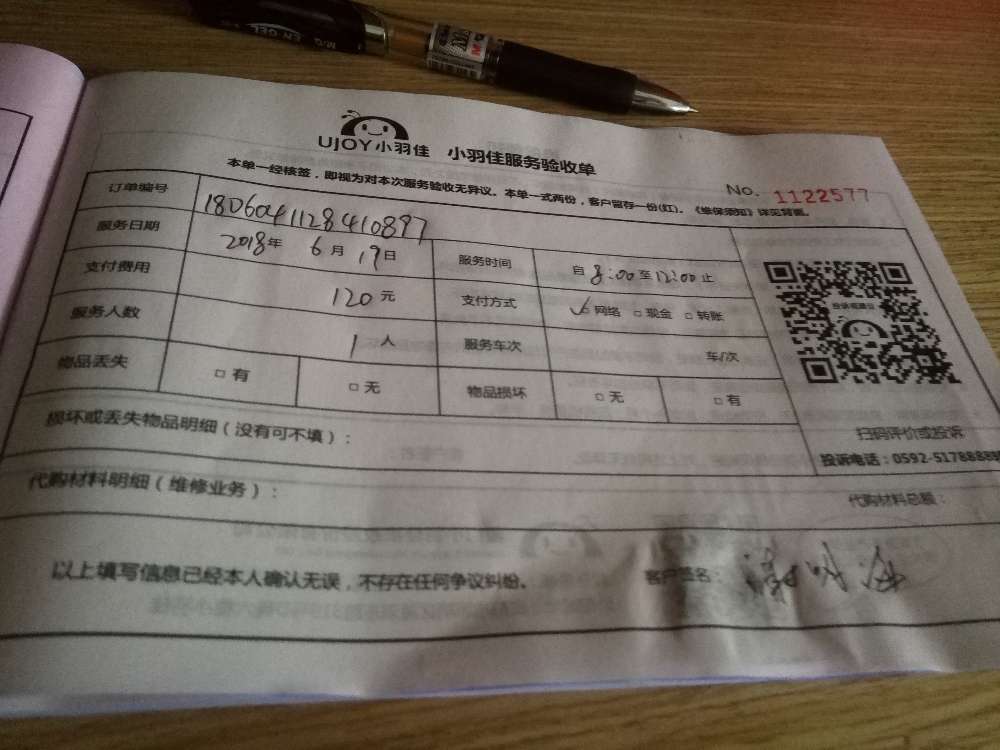 M&G EN GEL
UJOY小羽佳 小羽佳服务验收单
本单一经核签，即视为对本次服务验收无异议。本单一式两份，客户留存一份(红)。《维保须知》详见背面。
No. 1122577
订单编号 180604112841089
服务日期 2018年 6月 19日 服务时间 自 8:00 至 12:00 止
支付费用 120 元 支付方式 ✓ 网络 □ 现金 □ 转账
服务人数 1 人 服务车次 车/次
物品丢失 □ 有 □ 无 物品损坏 □ 无 □ 有
损坏或丢失物品明细（没有可不填）：
扫码评价或投诉
投诉电话：0592-5178888
代购材料明细（维修业务）：
代购材料总额：
以上填写信息已经本人确认无误，不存在任何争议纠纷。 客户签名：